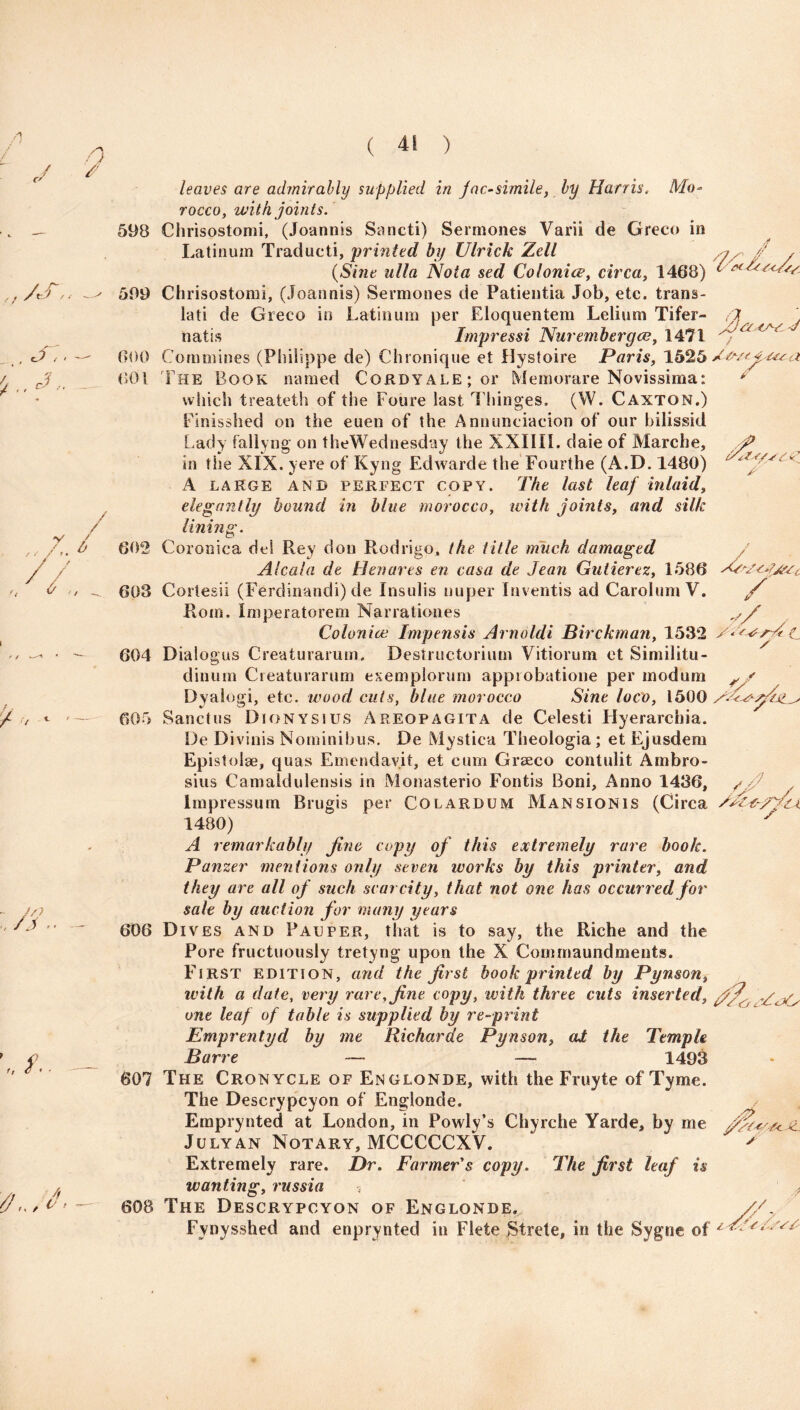 ( 41 )
leaves are admirably supplied in fac-simile, by Harris. Mo-
rocco, with joints.
598 Chrisostomi, (Joannis Sancti) Sermones Varii de Greco in
Latinum Traducti, printed by Ulrick Zell
(Sine ulla Nota sed Coloniæ, circa, 1468)
599 Chrisostomi, (Joannis) Sermones de Patientia Job, etc. trans-
lati de Greco in Latinum per Eloquentem Lelium Tifer-
natis Impressi Nurembergæ, 1471
600 Commines (Philippe de) Chronique et Hystoire Paris, 1525
601 THE BOOK named CORDYALE; or Memorare Novissima:
which treateth of the Foure last Thinges. (W. CAXTON.)
Finisshed on the euen of the Annunciacion of our bilissid
Lady fallyng on theWednesday the XXIIII. daie of Marche,
in the XIX. yere of Kyng Edwarde the Fourthe (A.D. 1480)
A LARGE AND PERFECT COPY. The last leaf inlaid,
elegantly bound in blue morocco, with joints, and silk
lining.
602 Coronica del Rey don Rodrigo, the title much damaged
Alcala de Henares en casa de Jean Gutierez, 1586
603 Cortesii (Ferdinandi) de Insulis nuper Inventis ad Carolum V.
Rom. Imperatorem Narrationes
Coloniæ Impensis Arnoldi Birckman, 1532
604 Dialogus Creaturarum. Destructorium Vitiorum et Similitu-
dinum Creaturarum exemplorum approbatione per modum
Dyalogi, etc. wood cuts, blue morocco Sine loco, 1500
605 Sanctus DIONYSIUS AREOPAGITA de Celesti Hyerarchia.
De Divinis Nominibus. De Mystica Theologia; et Ejusdem
Epistolæ, quas Emendavit, et cum Græco contulit Ambro-
sius Camaldulensis in Monasterio Fontis Boni, Anno 1436,
Impressum Brugis per COLARDUM MANSIONIS (Circa
1480)
A remarkably fine copy of this extremely rare book.
Panzer mentions only seven works by this printer, and
they are all of such scarcity, that not one has occurred for
sale by auction for many years
606 DIVES AND PAUPER, that is to say, the Riche and the
Pore fructuously tretyng upon the X Commaundments.
FIRST EDITION, and the first book printed by Pynson,
with a date, very rare, fine copy, with three cuts inserted,
one leaf of table is supplied by re-print
Emprentyd by me Richarde Pynson, at the Temple
Barre — — 1493
607 THE CRONYCLE OF ENGLONDE, with the Fruyte of Tyme.
The Descrypcyon of Englonde.
Emprynted at London, in Powly's Chyrche Yarde, by me
JULYAN NOTARY, MCCCCCXV.
Extremely rare. Dr. Farmer's copy. The first leaf is
wanting, russia
608 THE DESCRYPCYON OF ENGLONDE.
Fynysshed and enprynted in Flete Strete, in the Sygne of